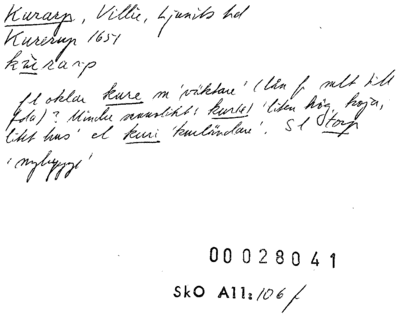 Kurarp, Villie, Ljunits hd
Kurerup 1651
kùrarp
fl oklar kure m 'väktare' (lån f mlt
fda)? Mindre sannolikt: kur(e) 'liten hög, koja,
litet hus' el kuri 'kurländare'. Sl torp
'nybygge'
00028041
SkO All: 106 f